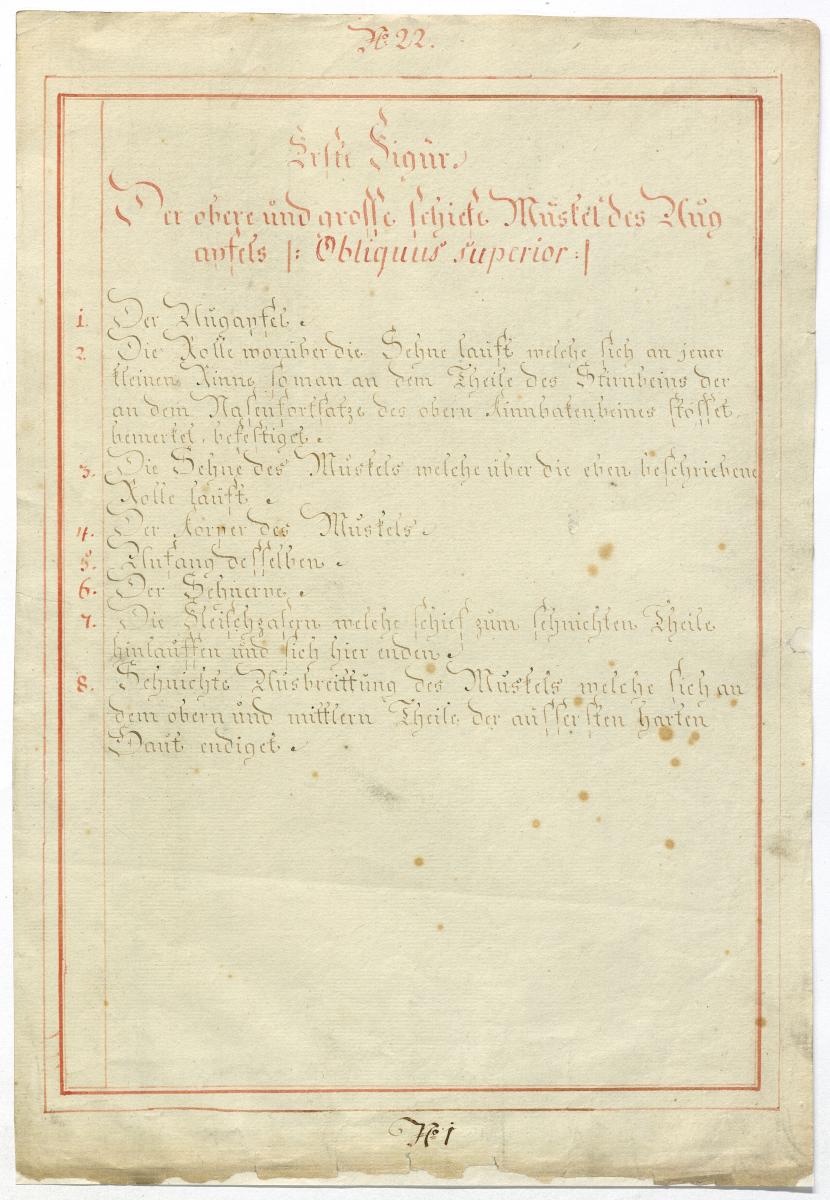 No 22.
Erste Figur.
Der obere und grosse schiefe Muskel des Aug
apfels |: Obliquus superior :|
1. Der Augapfel.
2. Die Rolle worüber die Sehne lauft welche sich an jener
kleinen Rinne so man an dem Theile des Stirnbeins der
an dem Nasenfortsatze des obern Kinnbakenbeines stosset
bemerket, befestiget.
3. Die Sehne des Muskels welche über die eben beschriebene
Rolle lauft.
4. Der Körper des Muskels.
5. Anfang desselben.
6. Der Sehnerve.
7. Die Fleischzasern welche schief zum sehnichten Theile
hinlauffen und sich hier enden.
8. Sehnichte Ausbreittung des Muskels welche sich an
dem obern und mittlern Theile der aussersten harten
Haut endiget.
No 1